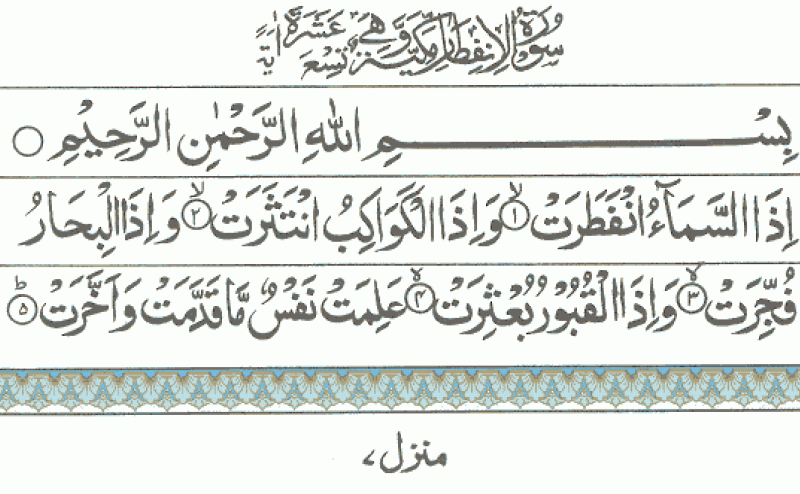 سُوْرَةُ الْاِنْفِطَارِ مَكِّيَّةٌ وَّهِىَ تِسْعَ عَشَرَةَ اٰيَةً
بِسْمِ اللهِ الرَّحْمٰنِ الرَّحِيْمِ ○
اِذَا السَّمَآءُ انْفَطَرَتْ ۙ﴿۱﴾ وَاِذَا الْكَوَاكِبُ انْتَثَرَتْ ۙ﴿۲﴾ وَاِذَا الْبِحَارُ
فُجِّرَتْ ۙ﴿۳﴾ وَاِذَا الْقُبُوْرُ بُعْثِرَتْ ۙ﴿۴﴾ عَلِمَتْ نَفْسٌ مَّا قَدَّمَتْ وَاَخَّرَتْ ؕ﴿۵﴾
منزل ۷